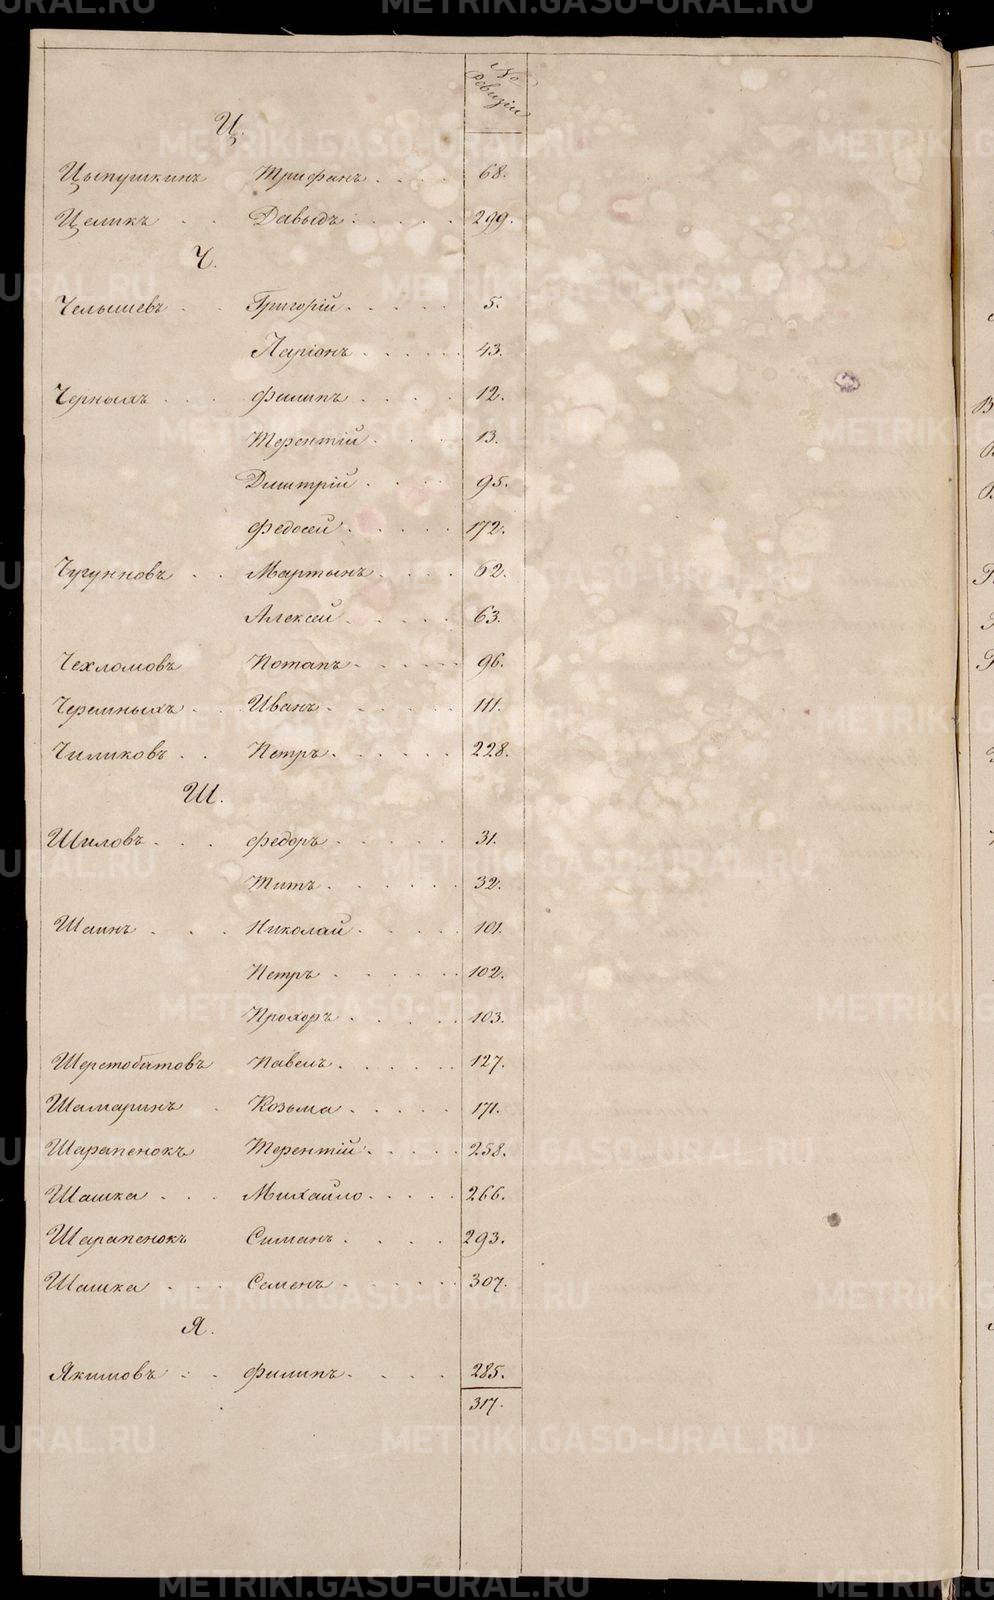 № Ревизіи
Ц.
Цыпушкинъ Трифанъ 68.
Целикъ Давыдъ 299.
Ч.
Челышевъ Григорій 5.
Ларіонъ 43.
Черныхъ Филипъ 12.
Терентій 13.
Дмитрій 95.
Федосей 172.
Чугунновъ Мартынъ 62.
Алексей 63.
Чехломовъ Потапъ 96.
Черемныхъ Иванъ 111.
Чиликовъ Петръ 228.
Ш.
Шиловъ Федоръ 31.
Титъ 32.
Шаинъ Николай 101.
Петръ 102.
Прохоръ 103.
Шерстобитовъ Павелъ 127.
Шамаринъ Козьма 171.
Шарапенокъ Терентій 258.
Шашка Михайло 266.
Шарапенокъ Симанъ 293.
Шашка Семенъ 307.
Я.
Якимовъ Филипъ 285.
317.
METRIKI.GASO-URAL.RU